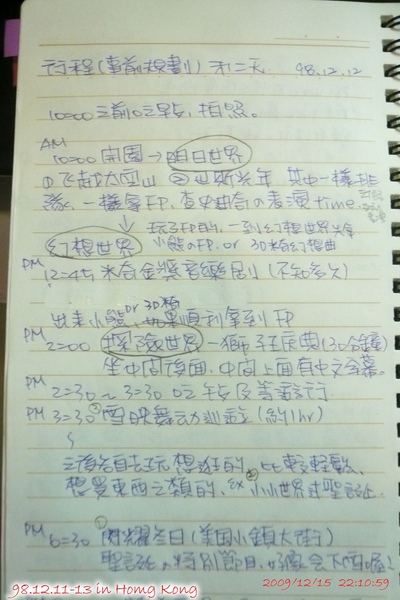 行程(事前規劃) 第二天 98.12.12
10:00之前吃早點,拍照。
AM
10:00 開園→明日世界
①飛越太空山 ②巴斯光年 其中一樣排
隊,一樣拿FP,查史迪奇の表演time.
↓ 玩完FP的,一到幻想世界先拿
小熊のFP. or 3D米奇幻想曲
幻想世界
PM
12:45 米奇金獎音樂劇 (不知多久)
出來小熊 or 3D 如果順利拿到FP
PM
2:00 探險世界-獅子王慶典(30分鐘)
坐中間後面,中間上面有中文字幕。
PM 2:30~3:30 吃午餐及等遊行
PM 3:30 雪映舞動巡遊 (約1hr)
之後各自去玩想玩的,比較輕鬆,
想買東西之類的, ex 小小世界式聖誕.
PM
6:30 閃耀冬日(美國小鎮大街)
聖誕 特別節目,好像會下雨喔!
98.12.11-13 in Homg Kong
2009/12/15 22:10:59